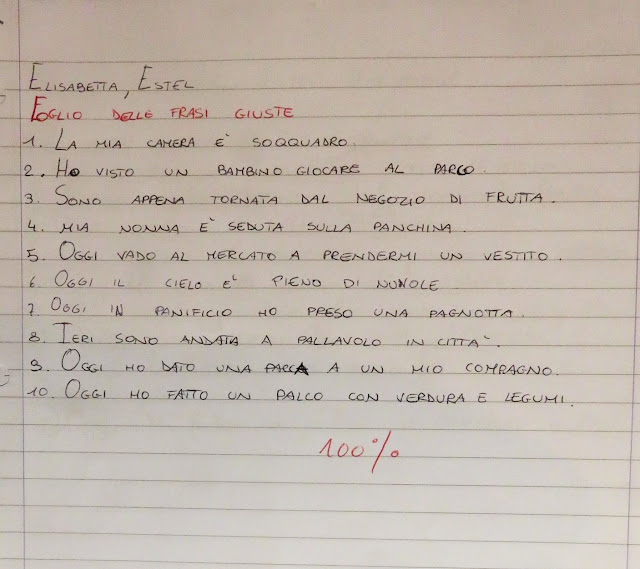 ELISABETTA, ESTEL
FOGLIO DELLE FRASI GIUSTE
1. LA MIA CAMERA E' SOQQUADRO.
2. HO VISTO UN BAMBINO GIOCARE AL PARCO.
3. SONO APPENA TORNATA DAL NEGOZIO DI FRUTTA.
4. MIA NONNA E' SEDUTA SULLA PANCHINA.
5. OGGI VADO AL MERCATO A PRENDERMI UN VESTITO.
6. OGGI IL CIELO E' PIENO DI NUVOLE
7. OGGI IN PANIFICIO HO PRESO UNA PAGNOTTA.
8. IERI SONO ANDATA A PALLAVOLO IN CITTA'.
9. OGGI HO DATO UNA PACCA A UN MIO COMPAGNO.
10. OGGI HO FATTO UN PALCO CON VERDURA E LEGUMI.
100%